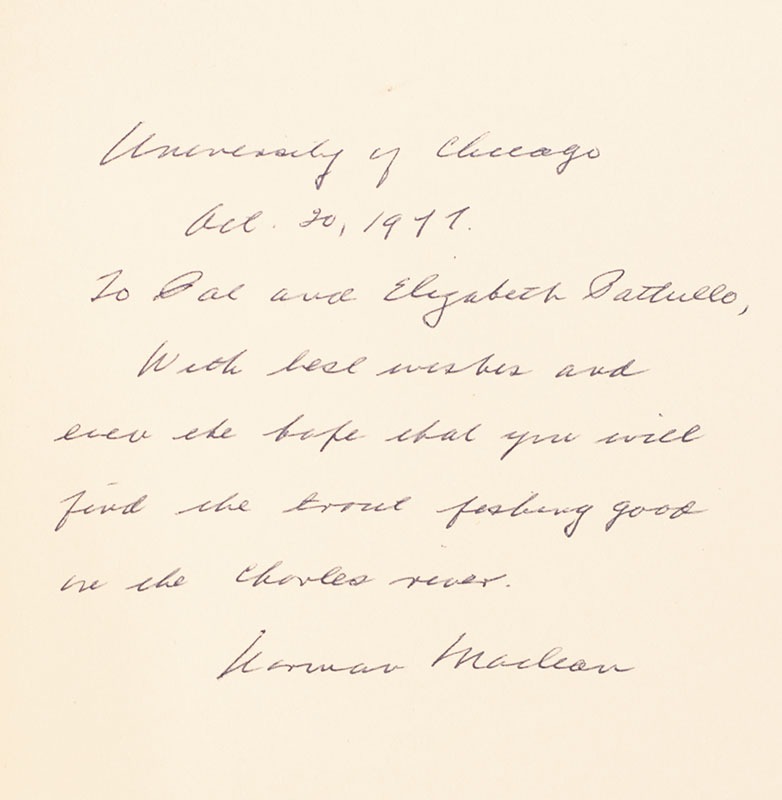 University of Chicago
Oct. 20, 1977.
To Pat and Elizabeth Pattullo,
With best wishes and
even the hope that you will
find the trout fishing good
in the Charles river.
Norman Maclean